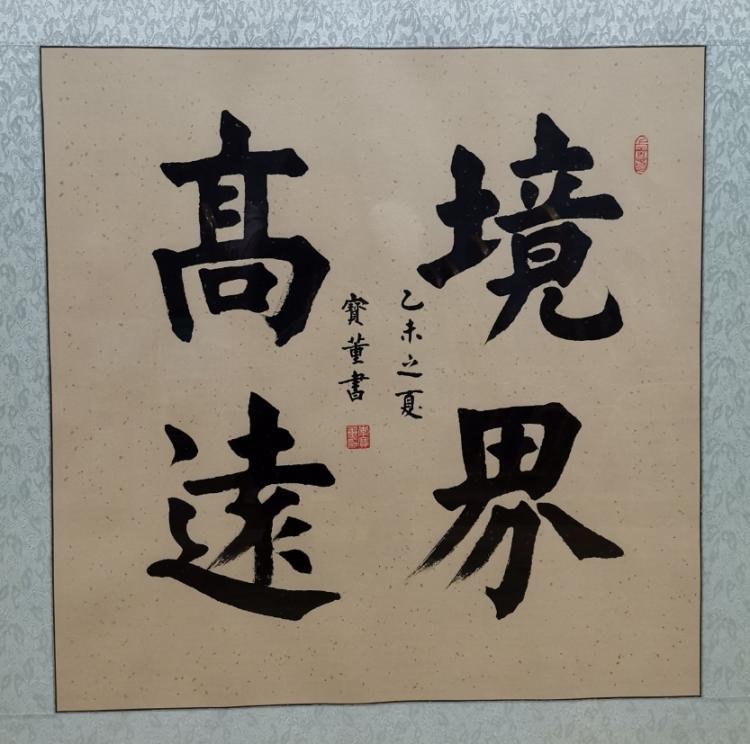 境界
高遠
乙未之夏
寳董書